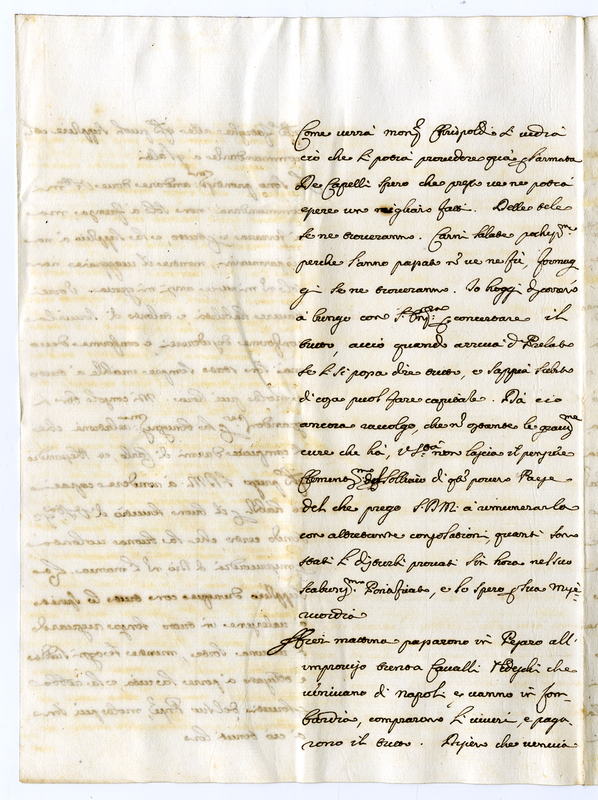 Come verrà mon.r Ghispoldi si vedrà
ciò che si potrà provedere quà p l'armata
De Capelli spero che presto ve ne potrà
essere un migliaro fatti. Delle tele
se ne troveranno. Carni salate pochiss.me
perche l'anno passato nò ve ne fù, formag
gi se ne troveranno. Io hoggi discorro
à lungo con p concertare il
tutto, acciò quando arrivi il Prelato
se li possa dire tutto, e sappia subito
di cosa puol fare capitale. Dà ciò
ancora raccolgo, che nò ostante le graviss.me
cure che hà, V. S.tà non lascia il pensiere
Clementiss.mo del sollievo di q.to povero Paese
del che prego S. D. M. à rimunerarla
con altretante consolationi, quanti son
stati li disturbi provati sin hora nel suo
Pontificato, e lo spero p sua mise=
ricordia
Hieri mattina passarono in Pesaro all'
improviso trenta Cavalli Tedeschi che
venivano di Napoli e vanno in Lom=
bardia, comprarono li viveri, e paga
rono il tutto. Dissero che veniva